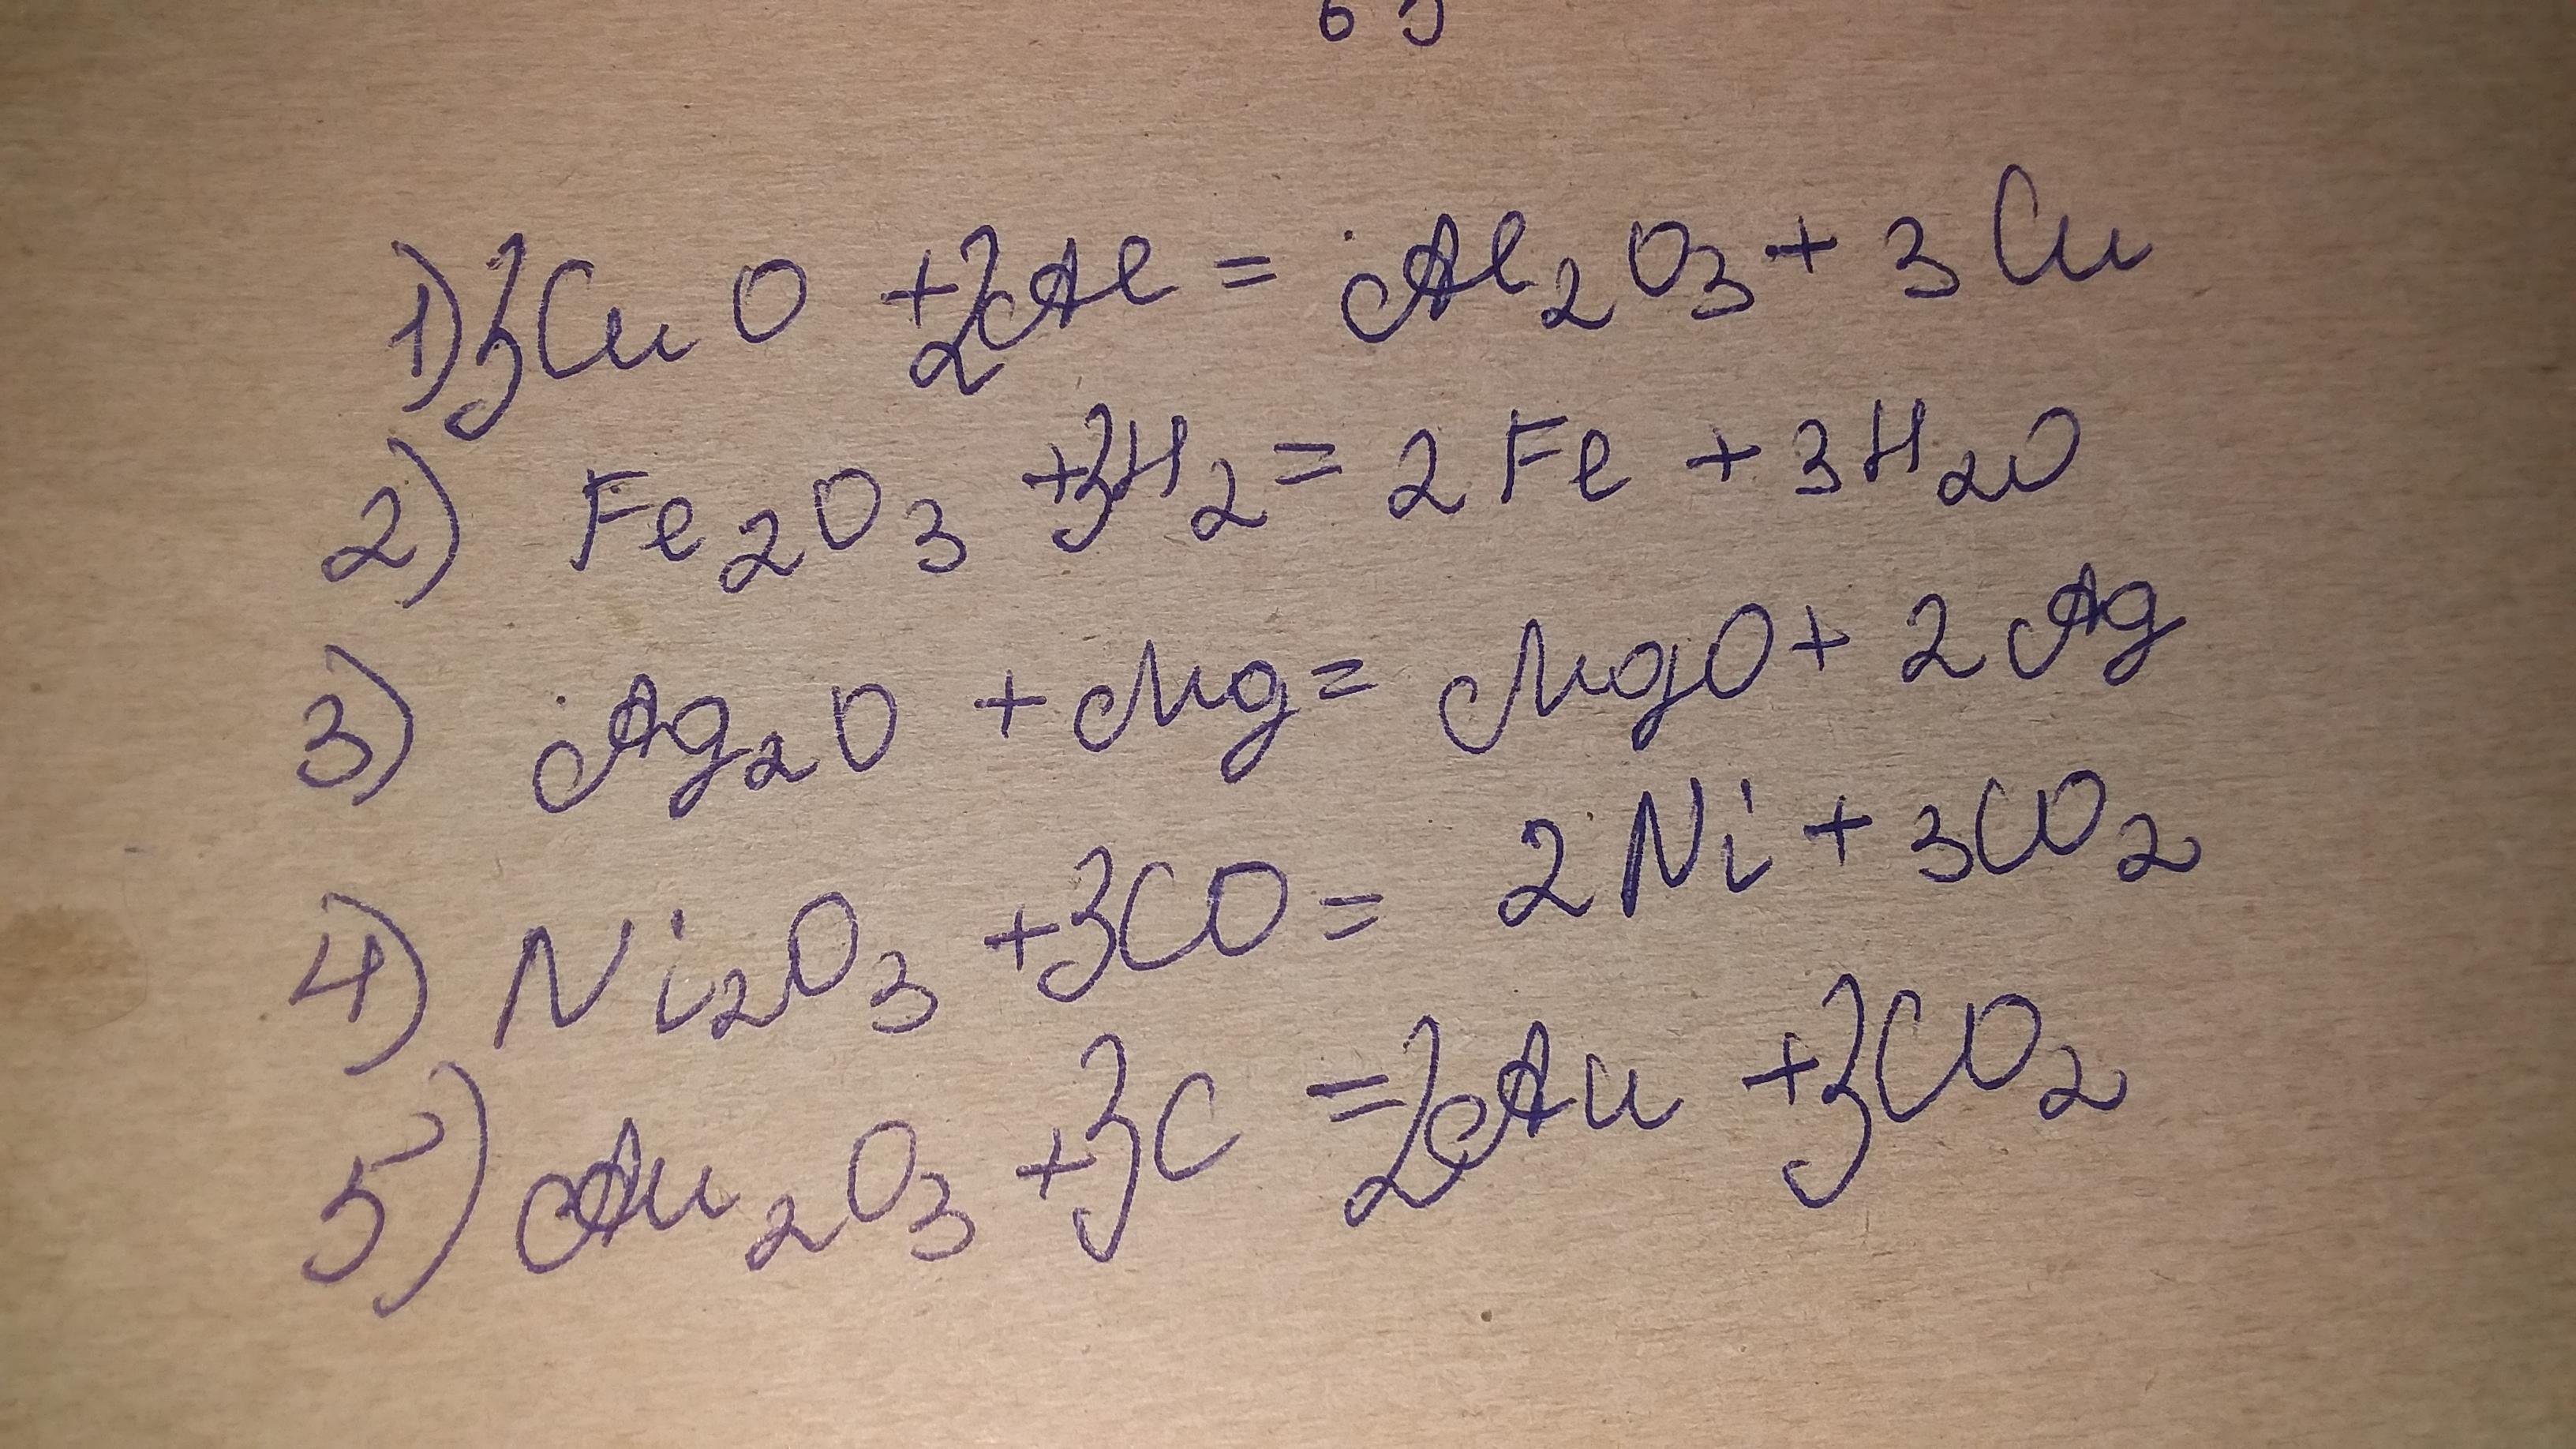 1) 3CuO + 2Al = Al₂O₃ + 3Cu
2) Fe₂O₃ + 3H₂ = 2Fe + 3H₂O
3) Ag₂O + Mg = MgO + 2Ag
4) Ni₂O₃ + 3CO = 2Ni + 3CO₂
5) Au₂O₃ + 3C = 2Au + 3CO₂